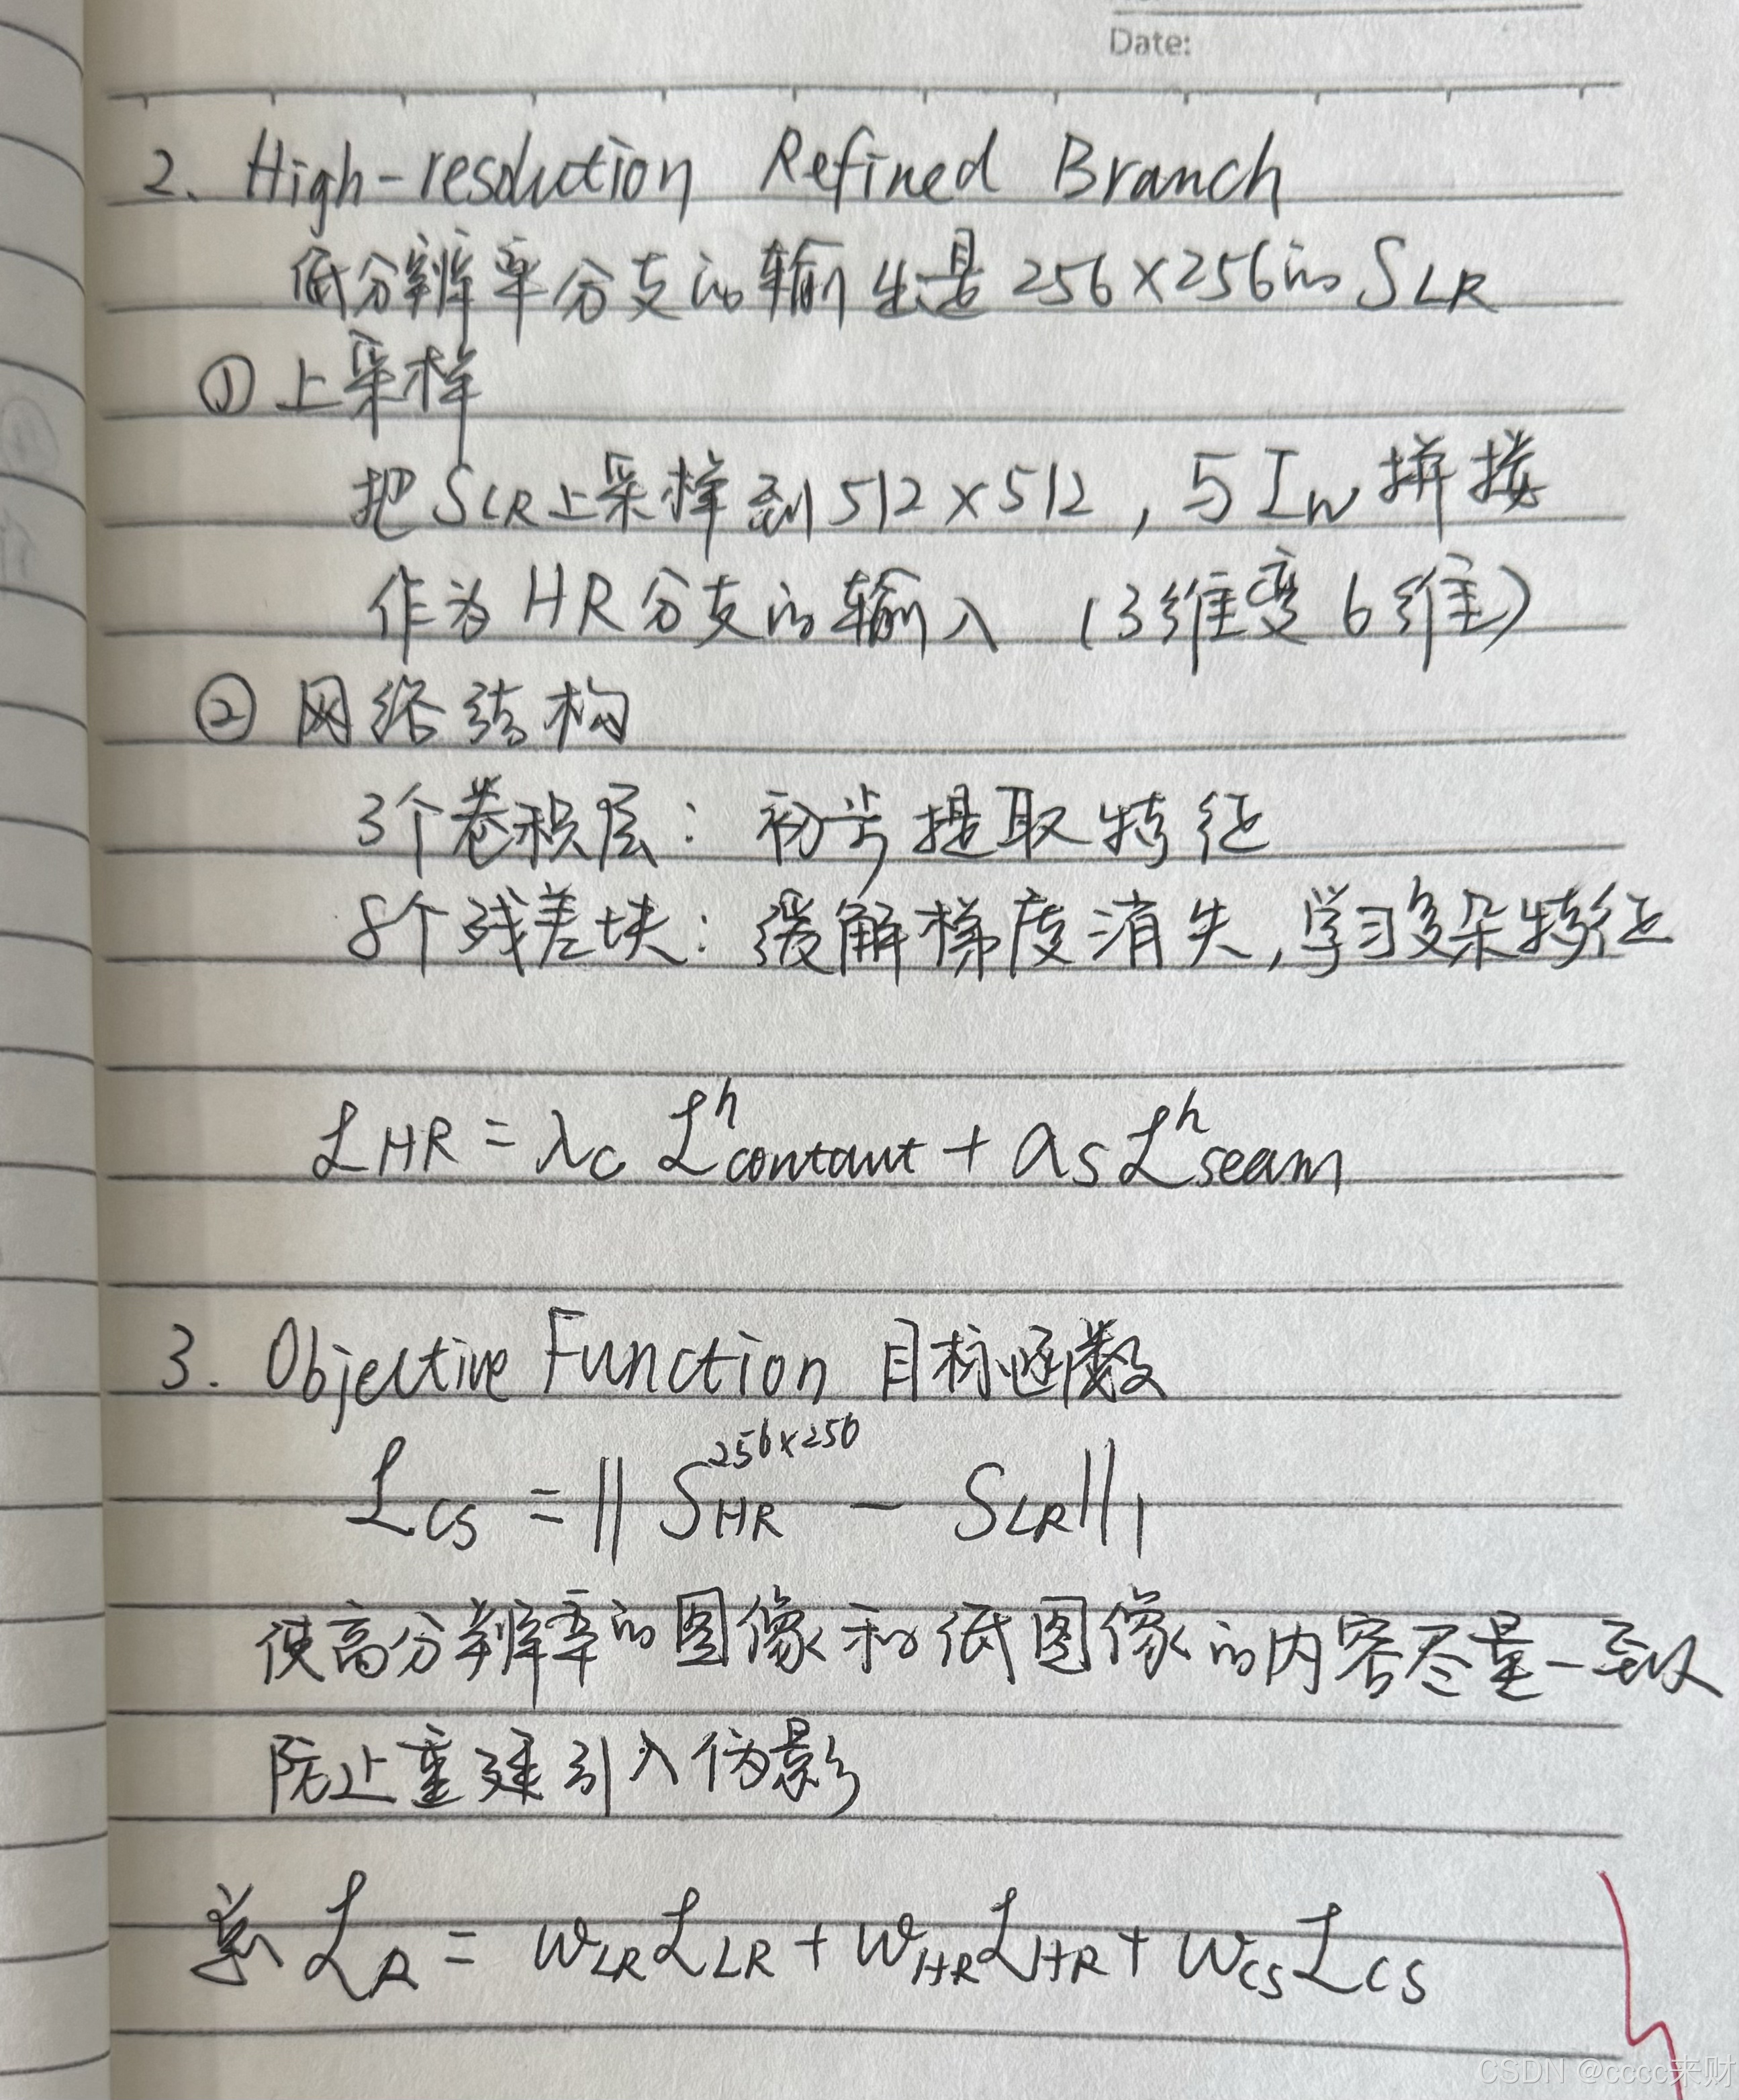 Date:
2. High-resolution Refined Branch
低分辨率分支的输出是256×256的 S_LR
① 上采样
把 S_LR 上采样到 512×512，与 I_W 拼接
作为 HR 分支的输入 （3维变6维）
② 网络结构
3个卷积层：初步提取特征
8个残差块：缓解梯度消失，学习多朵特征
ℒ_HR = λ_c ℒ^h_contant + α_s ℒ^h_seam
3. Objective Function 目标函数
ℒ_CS = || S_HR^256×256 − S_LR ||_1
使高分辨率的图像和低图像的内容尽量一致
防止重建引入伪影
总 ℒ_R = w_LR ℒ_LR + w_HR ℒ_HR + w_CS ℒ_CS
CSDN @cccc来财